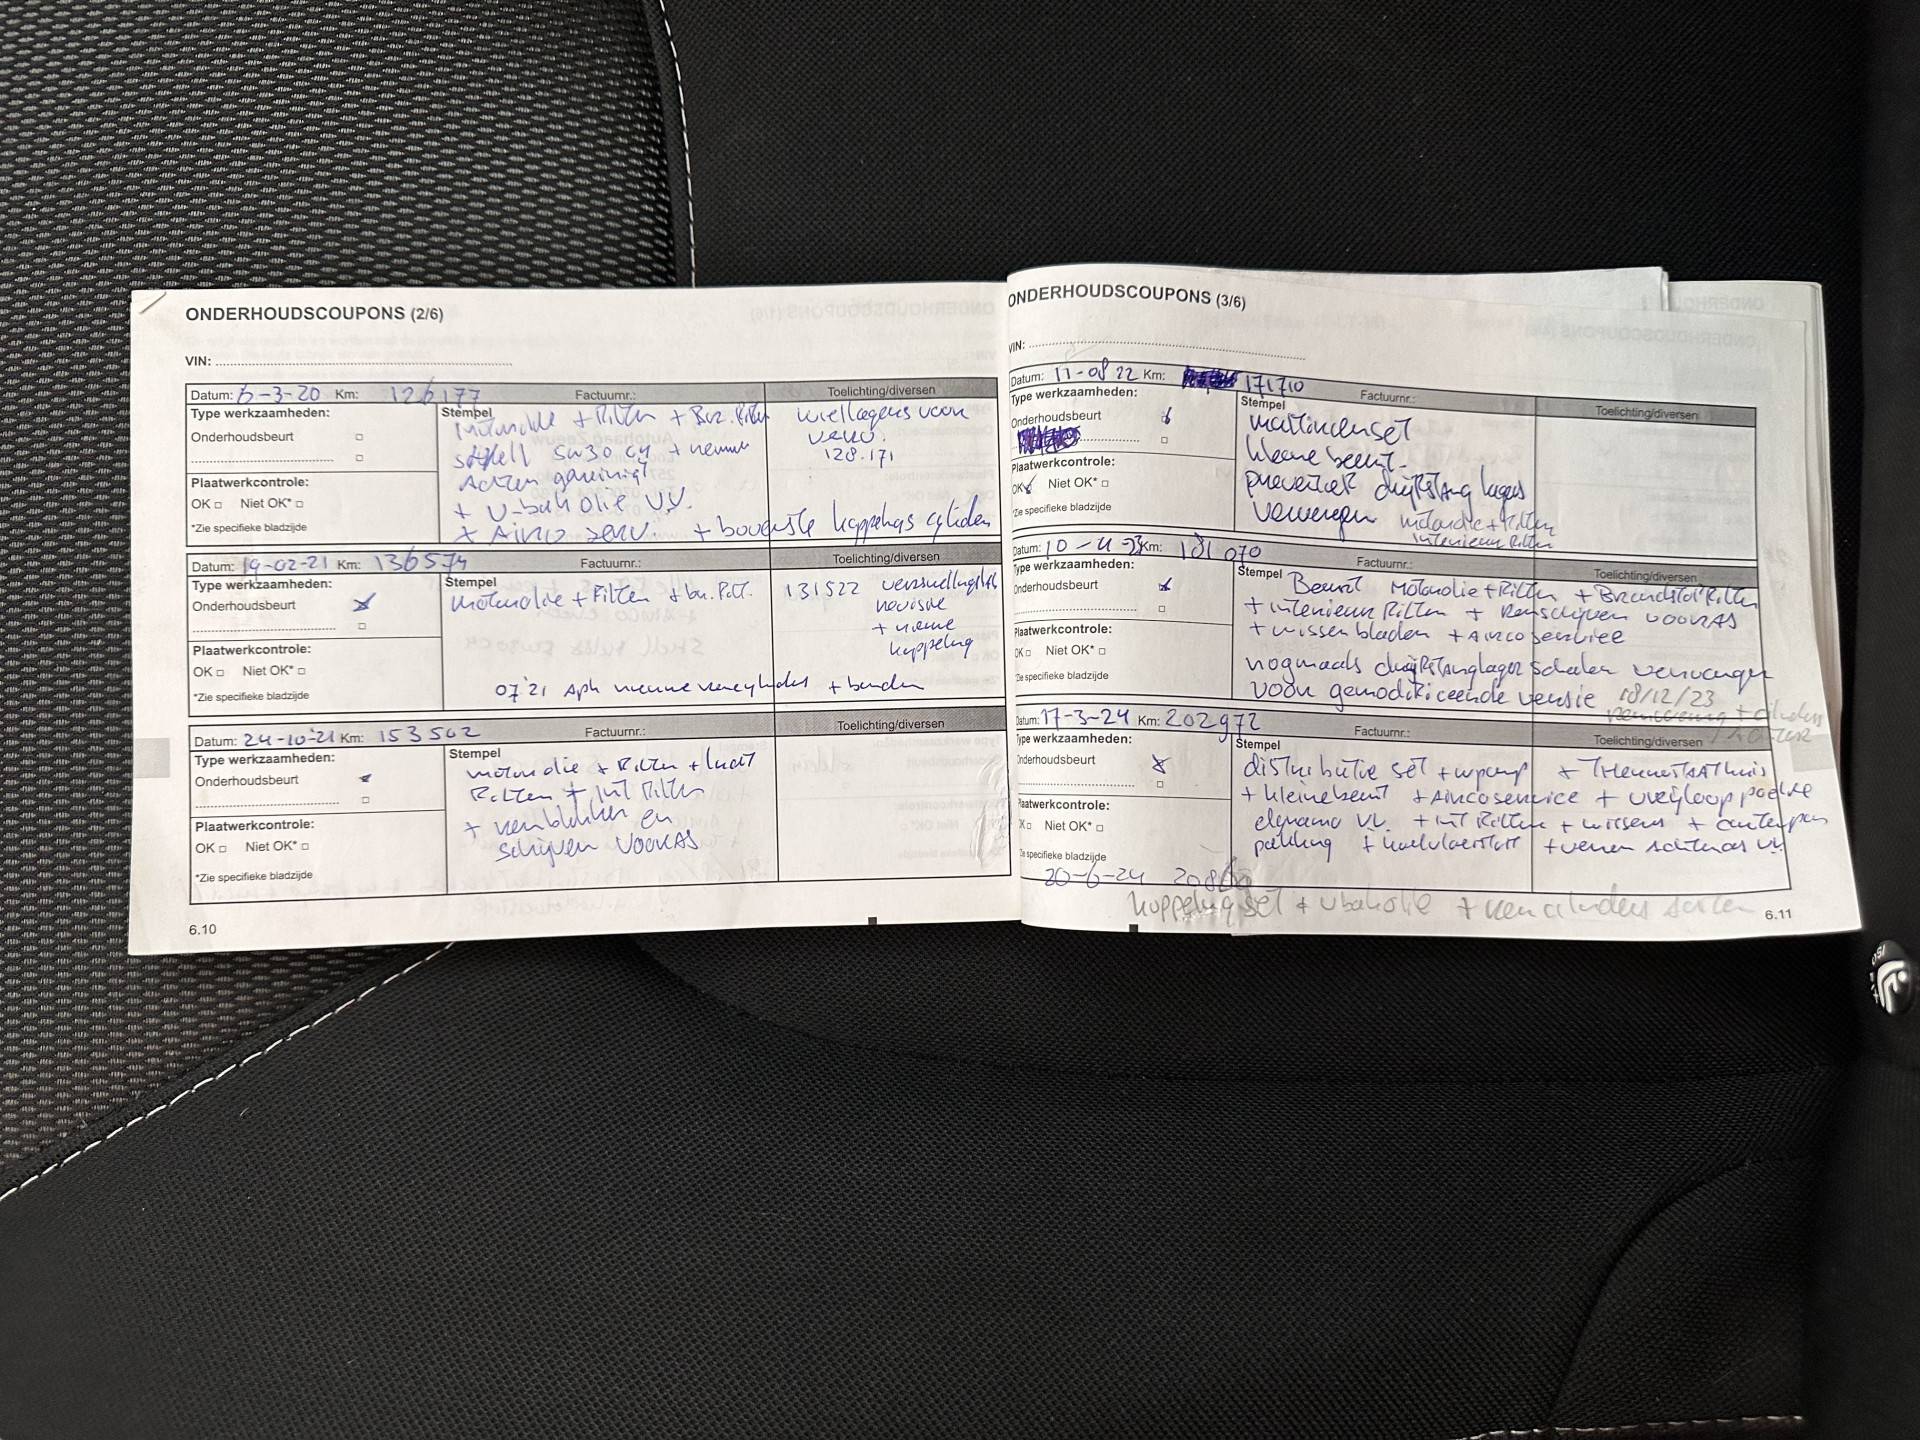 ONDERHOUDSCOUPONS (2/6)
VIN:
Datum: 6-3-20 Km: 126177 Factuurnr.: Toelichting/diversen
Type werkzaamheden:
Onderhoudsbeurt
Stempel
motorolie + Filter + Br. Filter
shell 5w30 + remmen
Achter gereinigt
+ V-bak olie VV.
+ Airco serv. + bovenste koppelings cylinder
wiellagers voor
verv.
128.171
Plaatwerkcontrole:
OK Niet OK*
*Zie specifieke bladzijde
Datum: 19-02-21 Km: 136574 Factuurnr.: Toelichting/diversen
Type werkzaamheden:
Onderhoudsbeurt
Stempel
motorolie + Filter + br. Filt.
131522 versnellingsbak
revisie
+ nieuwe
koppeling
Plaatwerkcontrole:
OK Niet OK*
07'21 Apk nieuwe remcylinders + banden
*Zie specifieke bladzijde
Datum: 24-10-21 Km: 153502 Factuurnr.: Toelichting/diversen
Type werkzaamheden:
Onderhoudsbeurt
Stempel
motorolie + Filter + lucht
Filter + int Filter
+ remblokken en
schijven VOORAS
Plaatwerkcontrole:
OK Niet OK*
*Zie specifieke bladzijde
6.10
ONDERHOUDSCOUPONS (3/6)
VIN:
Datum: 11-08 22 Km: 171710 Factuurnr.: Toelichting/diversen
Type werkzaamheden:
Onderhoudsbeurt
Stempel
multiriemset
kleine beurt
preventief drijfstang lagers
vervangen motorolie + Filter
interieur Filter
Plaatwerkcontrole:
OK Niet OK*
*Zie specifieke bladzijde
Datum: Km: 181070 Factuurnr.: Toelichting/diversen
Type werkzaamheden:
Onderhoudsbeurt
Stempel
Beurt Motorolie + Filter + Brandstof Filter
+ interieur Filter + Remschijven VOORAS
+ wissenbladen + Airco service
nogmaals drijfstanglager schalen vervangen
voor gemodificeerde versie 18/12/23
Plaatwerkcontrole:
OK Niet OK*
Zie specifieke bladzijde
Datum: 17-3-24 Km: 202972 Factuurnr.: Toelichting/diversen
Type werkzaamheden:
Onderhoudsbeurt
Stempel
distributie set + wpomp + THermostAAThuis
+ kleine beurt + Airco service + vrijloop poelie
dynamo VV. + int Filter + wissers + carterpan
pakking + koelvloeistof + veren Achteras VV.
Plaatwerkcontrole:
Niet OK*
Zie specifieke bladzijde
20-6-24
koppeling set + vbakolie + remcilinders achter
6.11